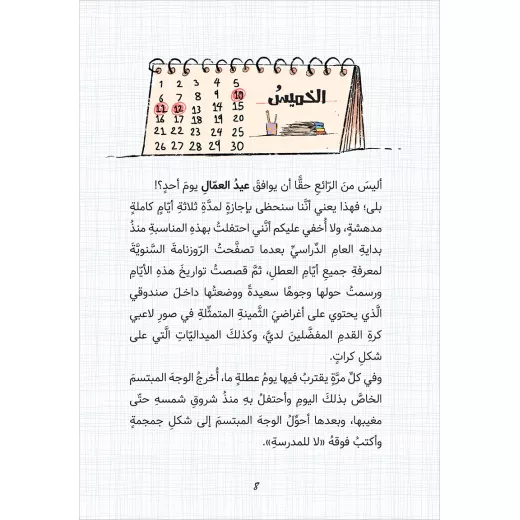 1 2 3 4 5
6 7 8 9 10
11 12 13 14 15
16 17 18 19 20
21 22 23 24 25
26 27 28 29 30
الخميسُ
أليسَ منَ الرّائعِ حقًّا أن يوافقَ عيدُ العمّالِ يومَ أحدٍ؟!
بلى؛ فهذا يعني أنَّنا سنحظى بإجازةٍ لمدَّةِ ثلاثةِ أيّامٍ كاملةٍ
مدهشةٍ، ولا أُخفي عليكم أنَّني احتفلتُ بهذهِ المناسبةِ منذُ
بدايةِ العامِ الدِّراسيِّ بعدما تصفَّحتُ الرّوزنامةَ السَّنويَّةَ
لمعرفةِ جميعِ أيّامِ العطلِ، ثمَّ قصصتُ تواريخَ هذهِ الأيّامِ
ورسمتُ حولها وجوهًا سعيدةً ووضعتُها داخلَ صندوقي
الَّذي يحتوي على أغراضيَ الثَّمينةِ المتمثِّلةِ في صورِ لاعبي
كرةِ القدمِ المفضَّلين لديَّ، وكذلكَ الميداليّاتِ الَّتي على
شكلِ كراتٍ.
وفي كلِّ مرَّةٍ يقتربُ فيها يومُ عطلةٍ ما، أُخرجُ الوجهَ المبتسمَ
الخاصَّ بذلكَ اليومِ وأحتفلُ بهِ منذُ شروقِ شمسهِ حتّى
مغيبها، وبعدها أحوِّلُ الوجهَ المبتسمَ إلى شكلِ جمجمةٍ
وأكتبُ فوقهُ «لا للمدرسةِ».
٨